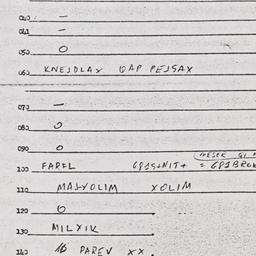 040. —
041 —
050. O
060. KNEJDLAX GAP PEJSAX
070 —
080. O
090 O
100 FARFL
110 MAJ-YOLIM XOLIM
120 O
130. MILXIK
140 PAREV XX.